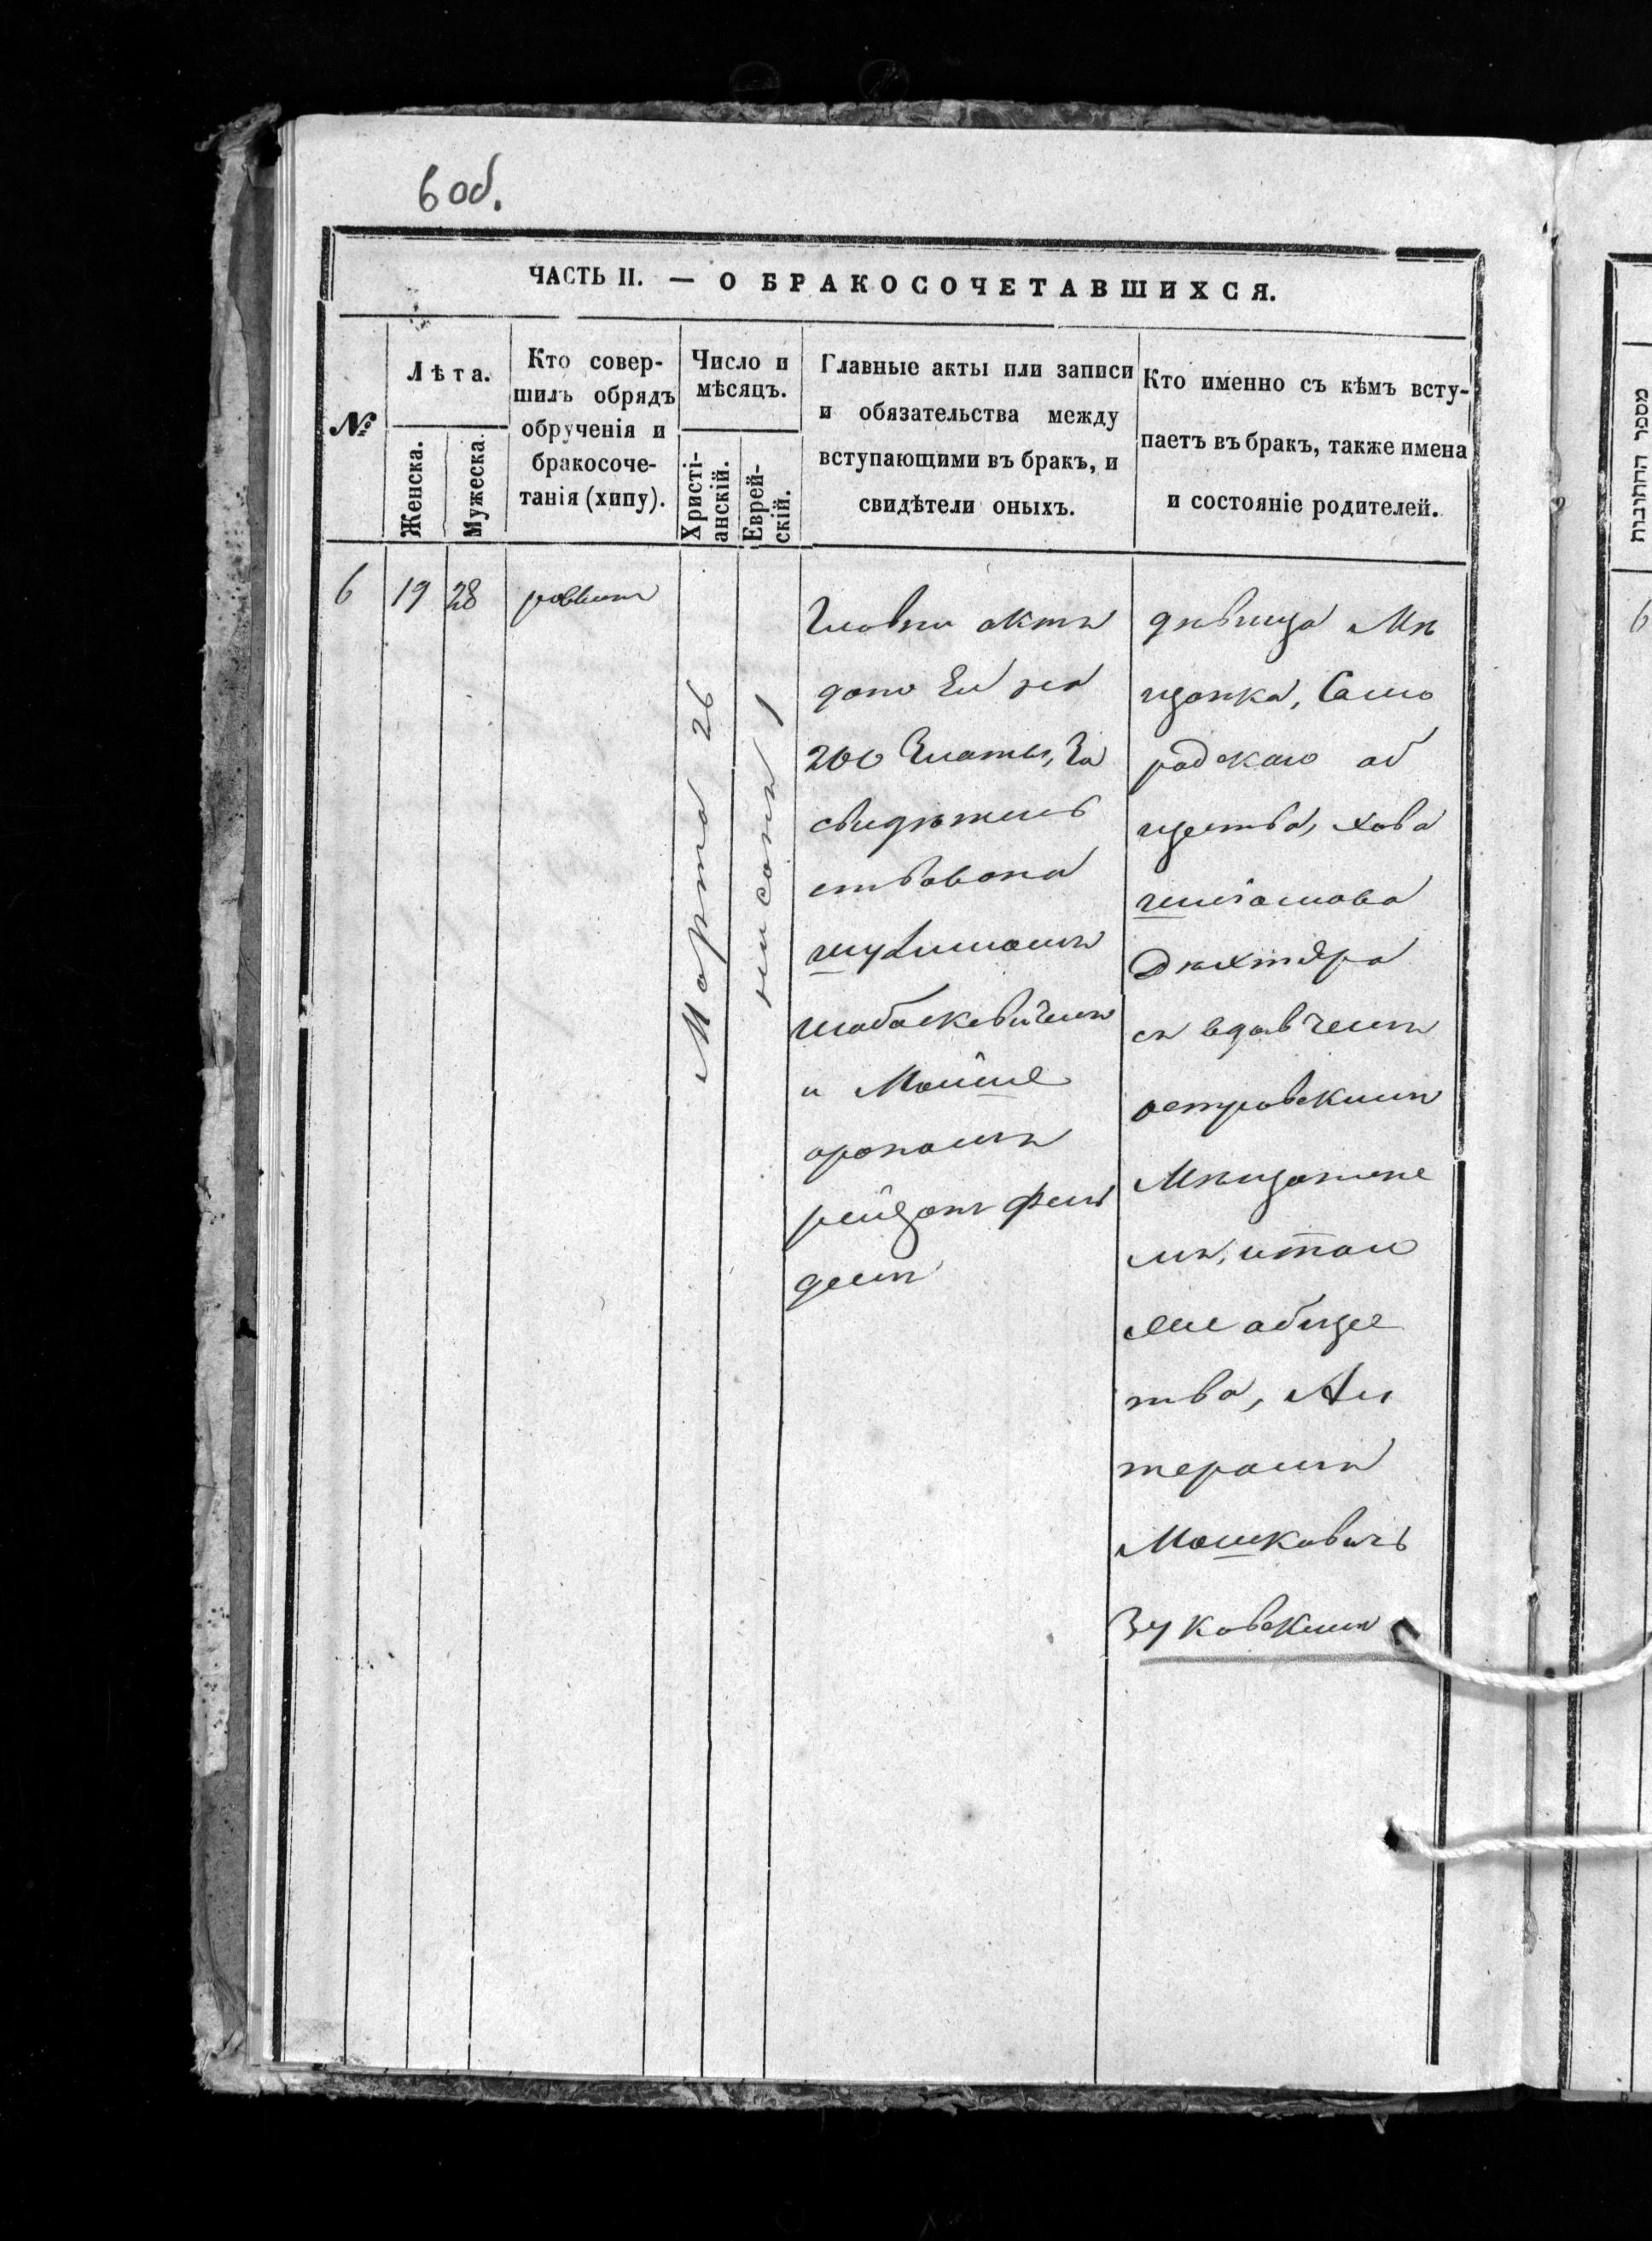 6 об.
ЧАСТЬ II. — О БРАКОСОЧЕТАВШИХСЯ.
№
Лѣта.
Женска.
Мужеска.
Кто совер-
шилъ обрядъ
обрученія и
бракосоче-
танія (хипу).
Число и
мѣсяцъ.
Христі-
анскій.
Еврей-
скій.
Главные акты или записи
и обязательства между
вступающими въ бракъ, и
свидѣтели оныхъ.
Кто именно съ кѣмъ всту-
паетъ въ бракъ, также имена
и состояніе родителей.
6
19
28
Марта 26
нисона 1
акты
дано Ей на
200 Злоты, За
свидѣтель
ствована
шабаскевичемъ
и Мойше
дем
дѣвица Мѣ
щанка, Само
родскаго об
щества, хова
Дихтера
съ вдавчемъ
островскимъ
Мѣщанине
мъ,
обще
тва,
Мошковичъ
Зуковскимъ
מספר החתונות
6